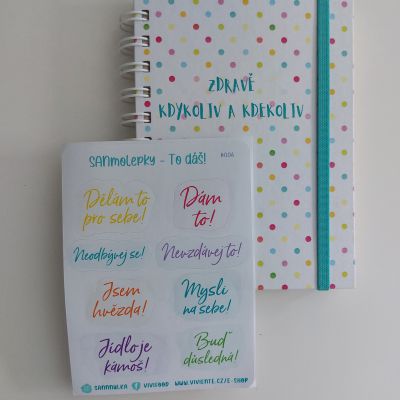 ZDRAVĚ
KDYKOLIV A KDEKOLIV
SANMOLEPKY - TO DÁŠ!
#006
Dělám to
pro sebe!
Dám
to!
Neodbývej se!
Nevzdávej to!
Jsem
hvězda!
Mysli
na sebe!
Jídlo je
kámoš!
Buď
důsledná!
SANMNULKA
VIVIFOOD
WWW.VIVIENTE.CZ/E-SHOP